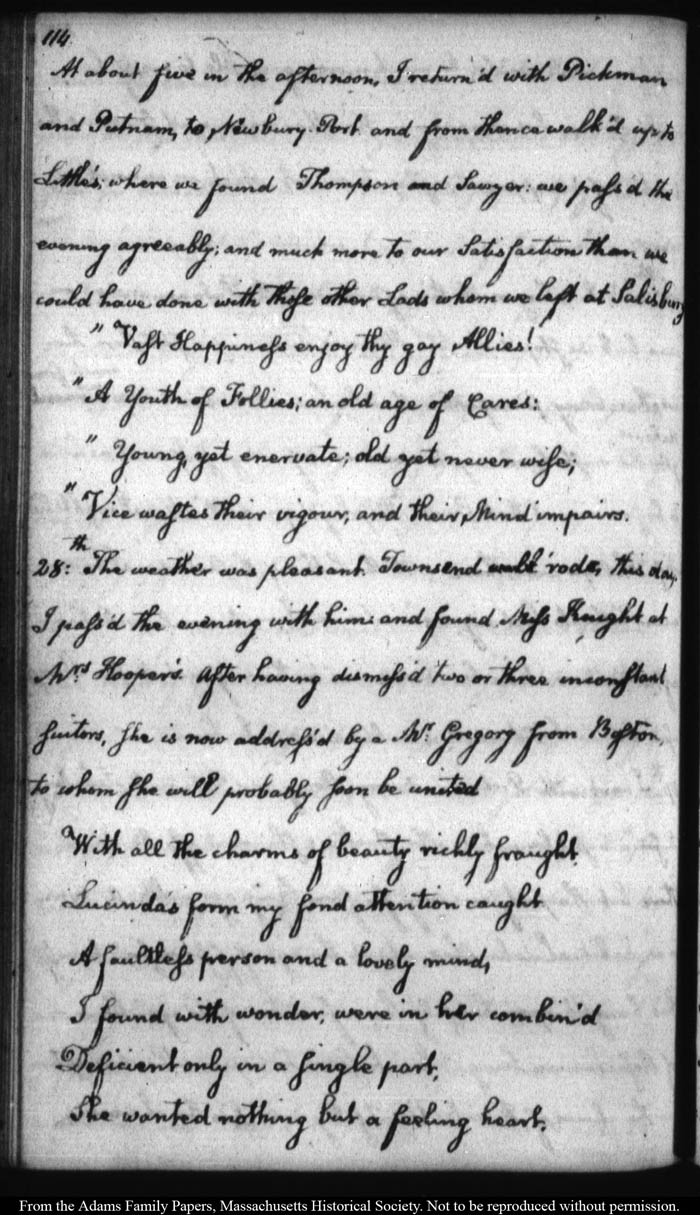 114.
At about five in the afternoon, I return'd with Pickman
and Putnam, to Newbury-Port and from thence walk'd up to
Little's; where we found Thompson and Sawyer: we pass'd the
evening agreeably; and much more to our Satisfaction than we
could have done with those other Lads whom we left at Salisbury
" Vast Happiness enjoy thy gay Allies!
" A Youth of Follies; an old age of Cares:
" Young, yet enervate; old yet never wise;
" Vice wastes their vigour, and their Mind impairs.
28:th The weather was pleasant. Townsend rode, this day.
I pass'd the evening with him: and found Miss Knight at
Mrs Hooper's. After having dismiss'd two or three inconstant
suitors, she is now address'd by a Mr. Gregory from Boston,
to whom she will probably soon be united
With all the charms of beauty richly fraught
Lucinda's form my fond attention caught
A faultless person and a lovely mind,
I found with wonder, were in her combin'd
Deficient only in a single part,
She wanted nothing but a feeling heart.
From the Adams Family Papers, Massachusetts Historical Society. Not to be reproduced without permission.